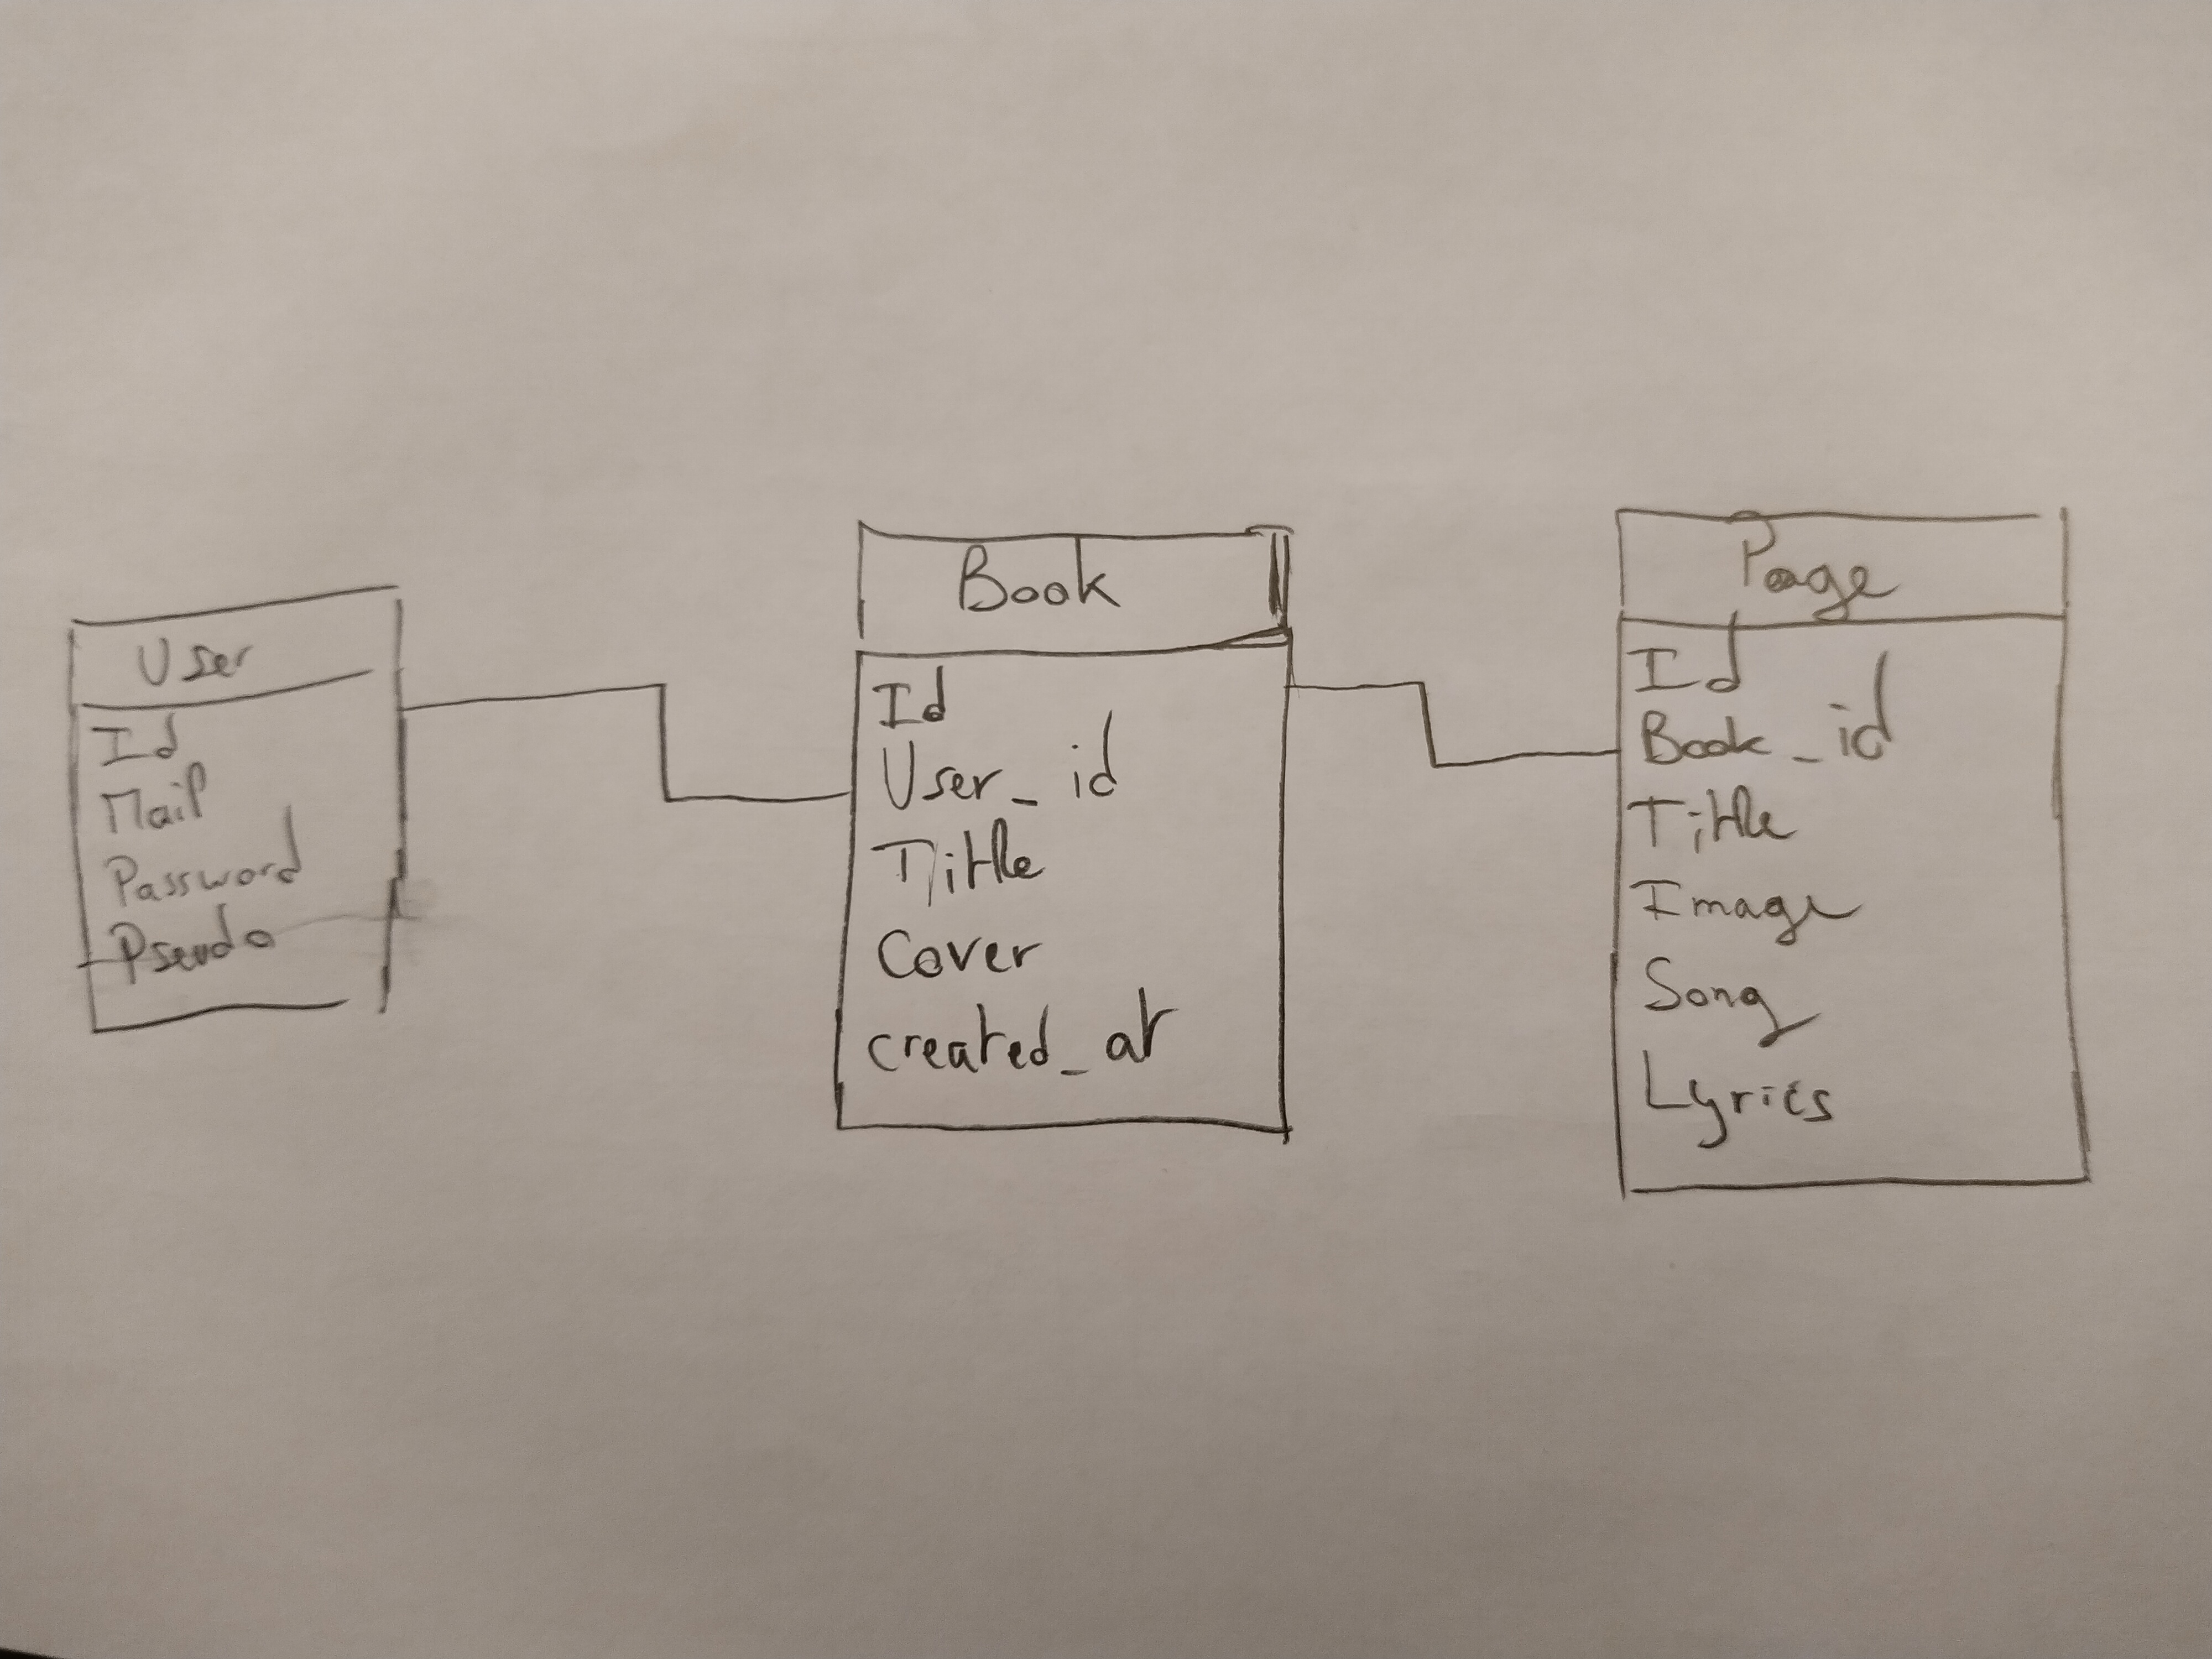 User
Id
Mail
Password
Pseudo
Book
Id
User_id
Title
Cover
created_at
Page
Id
Book_id
Title
Image
Song
Lyrics